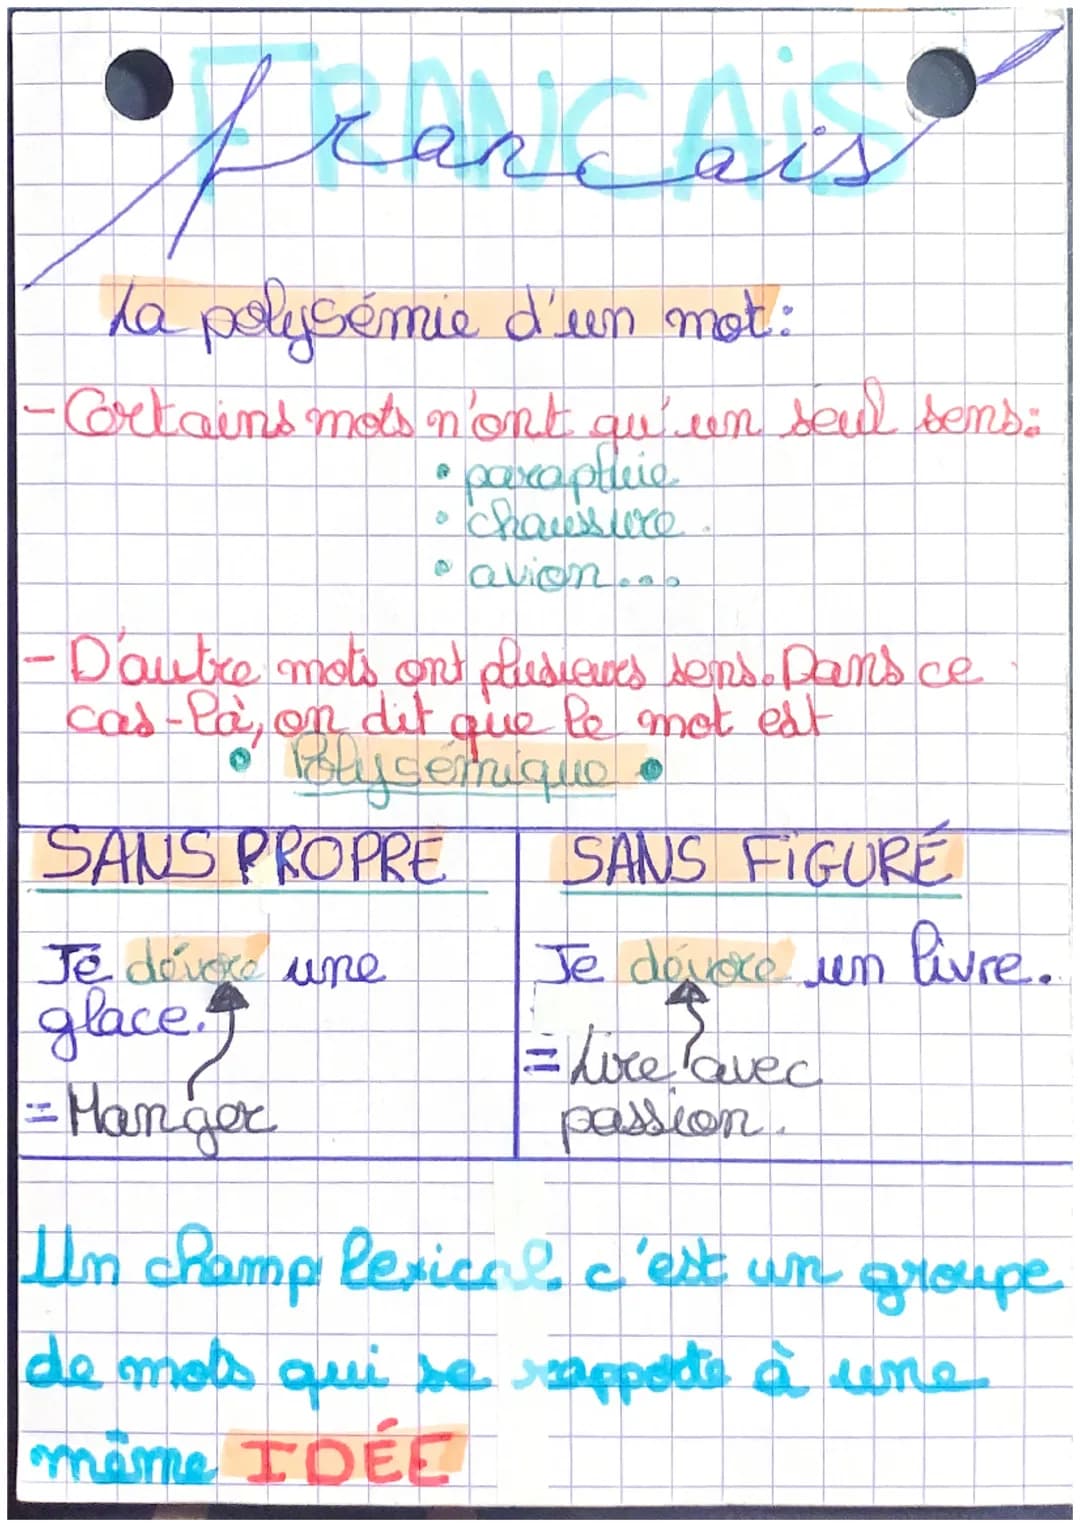 FRANCAiS
francais
La polysémie d'un mot:
- Certains mots n'ont qu'un seul sens:
• parapluie
• chaussure.
• avion...
- D'autre mots ont plusieurs sens. Dans ce
cas-là, on dit que le mot est
• Polysémique •
SANS PROPRE
Je dévore une
glace.
= Manger
SANS FiGURÉ
Je dévore un livre.
= Lire avec
passion.
Un champ lexical c'est un groupe
de mots qui se rapporte à une
même IDÉE